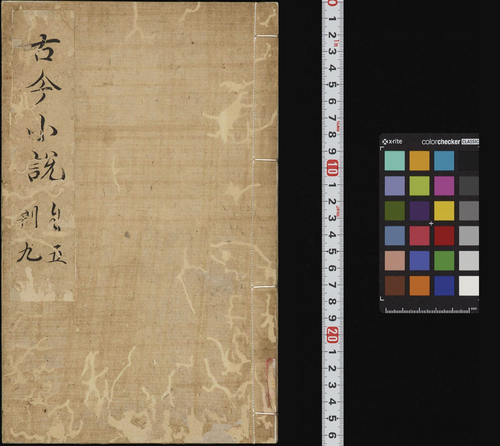 古今小說
自五
到九
0 1 2 3 4 5 6 7 8 9 10 1 2 3 4 5 6 7 8 9 20 1 2 3 4 5 6
x-rite colorchecker CLASSIC